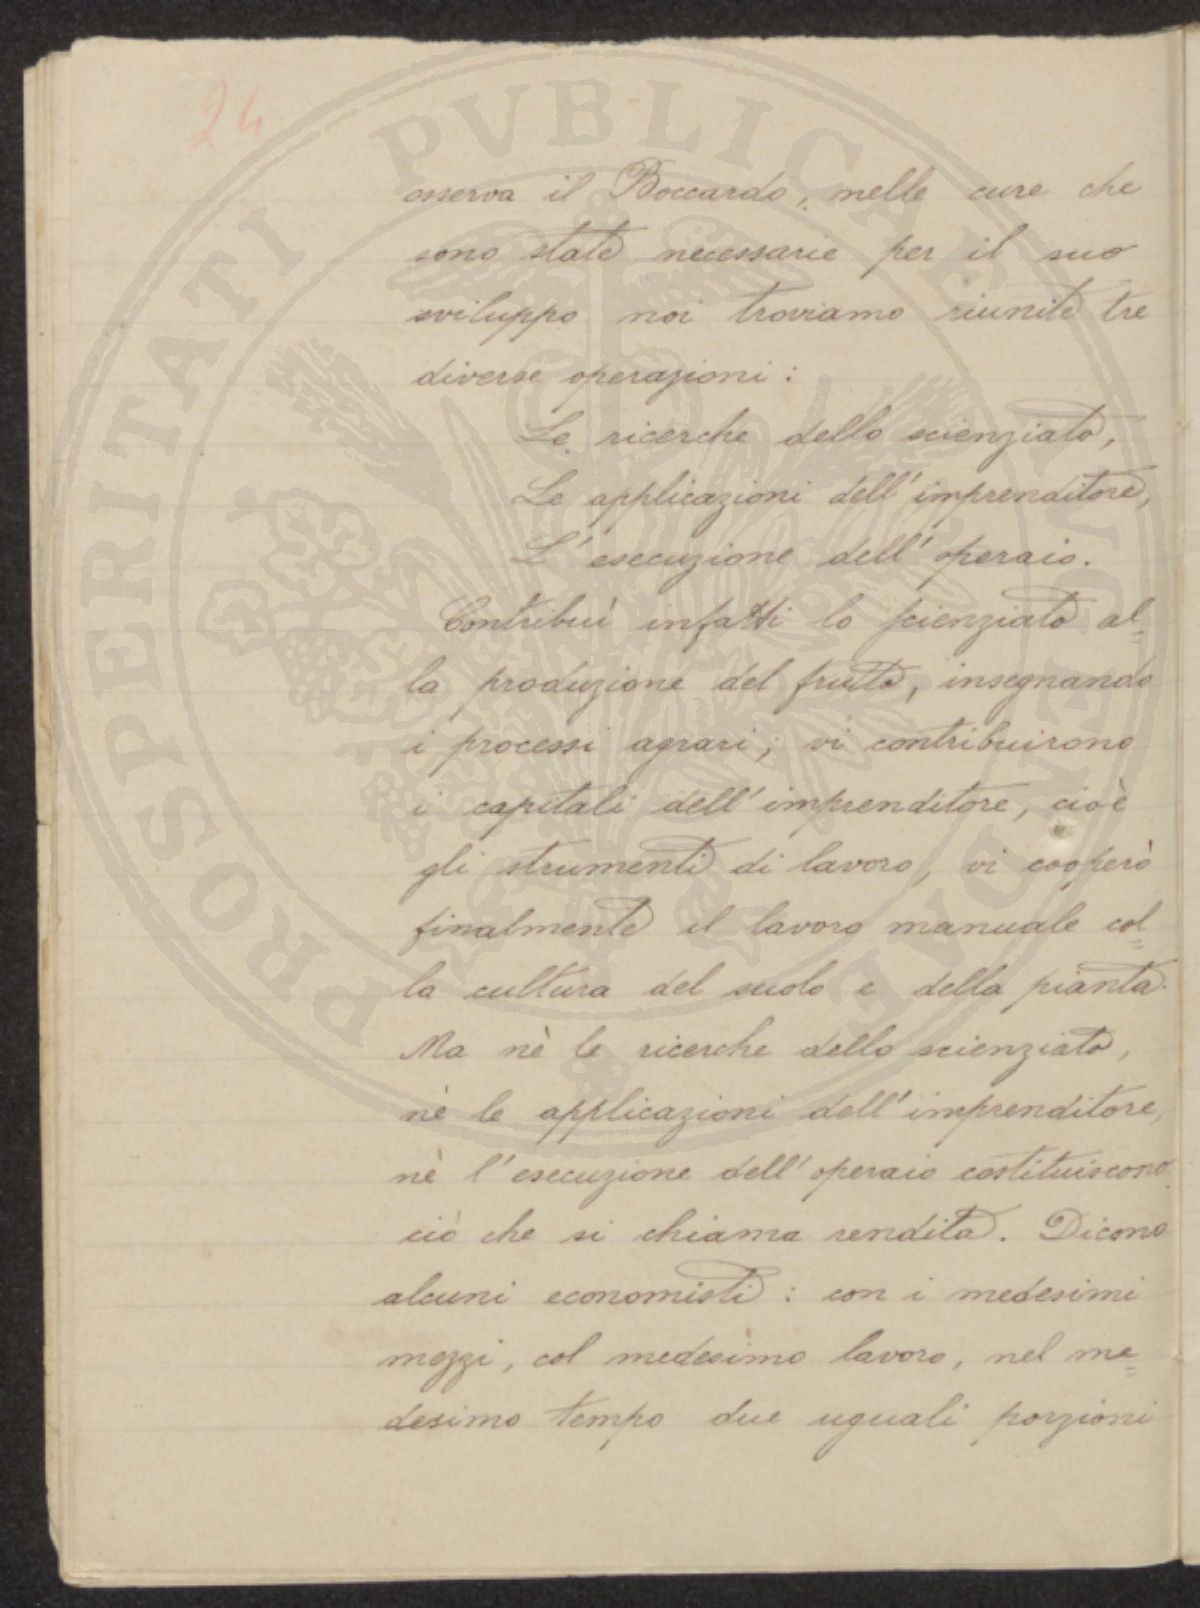 24
PROSPERITATI PVBLICAE AVGENDAE
osserva il Boccardo, nelle cure che
sono state necessarie per il suo
sviluppo noi troviamo riunite tre
diverse operazioni:
Le ricerche dello scienziato,
Le applicazioni dell'imprenditore,
L'esecuzione dell'operaio.
Contribuì infatti lo scienziato al=
la produzione del frutto, insegnando
i processi agrari; vi contribuirono
i capitali dell'imprenditore, cioè
gli strumenti di lavoro, vi cooperò
finalmente il lavoro manuale col=
la cultura del suolo e della pianta.
Ma nè le ricerche dello scienziato,
nè le applicazioni dell'imprenditore,
nè l'esecuzione dell'operaio costituiscono
ciò che si chiama rendita. Dicono
alcuni economisti: con i medesimi
mezzi, col medesimo lavoro, nel me=
desimo tempo due uguali porzioni